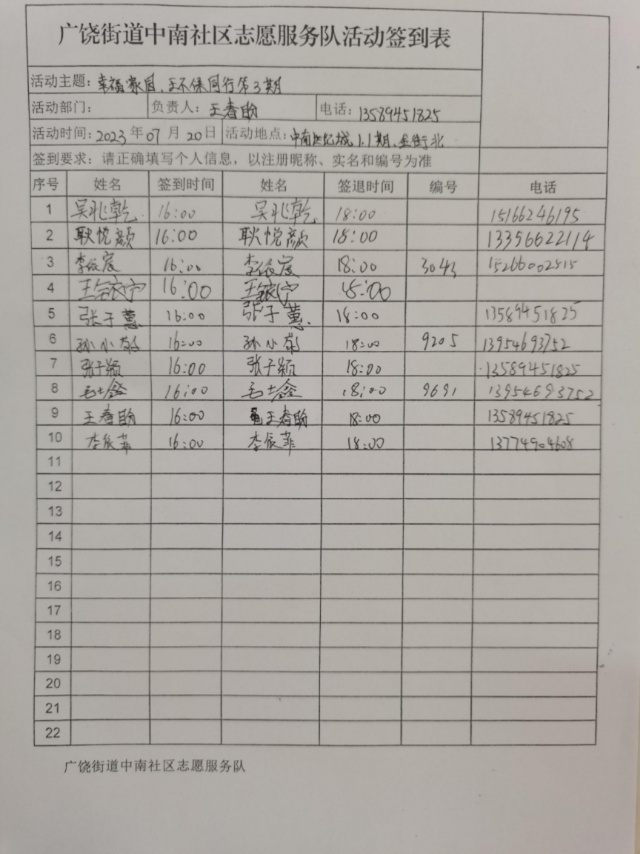 广饶街道中南社区志愿服务队活动签到表
活动主题：幸福家园，环保同行第3期
活动部门： 负责人：王春 电话：13589451825
活动时间：2023年07月20日 活动地点：中南世纪城1.1期，金街北
签到要求：请正确填写个人信息，以注册昵称、实名和编号为准
序号 姓名 签到时间 姓名 签退时间 编号 电话
1 吴兆乾 16:00 吴兆乾 18:00 15166246195
2 耿悦颜 16:00 耿悦颜 18:00 13356622114
3 李宸 16:00 李宸 18:00 3043 15266002515
4 王宁 16:00 王宁 18:00
5 张子蕙 16:00 张子蕙 18:00 13589451825
6 孙小菊 16:00 孙小菊 18:00 9205 13954693752
7 张子颖 16:00 张子颖 18:00 13589451825
8 16:00 18:00 9691 13954693752
9 王春 16:00 王春 18:00 13589451825
10 李辰菲 16:00 李辰菲 18:00 13774904608
11
12
13
14
15
16
17
18
19
20
21
22
广饶街道中南社区志愿服务队